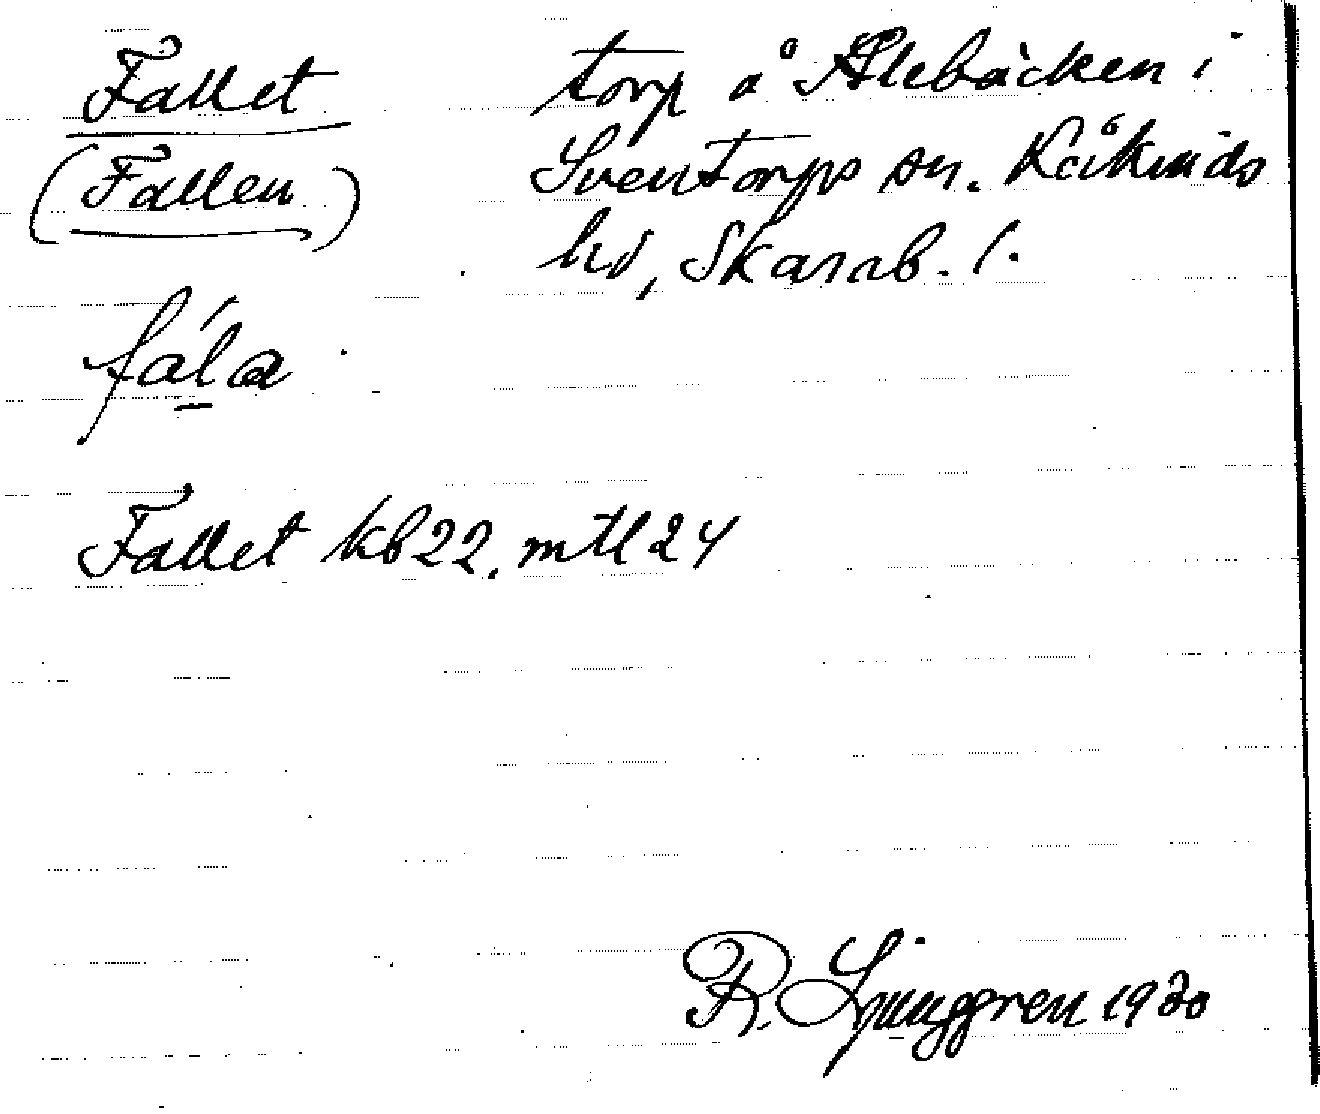 Fallet torp å Alebäcken i
(Fallen) Sventorps sn. Kåkinds
hd, Skarab. l.
fála
Fallet kb 22. mtl 24
R. Ljunggren 1930